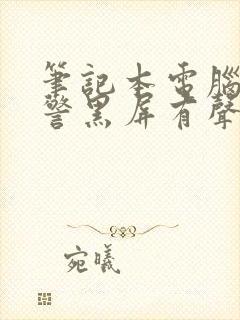 筆記本電腦
警黑屏有聲
宛曦